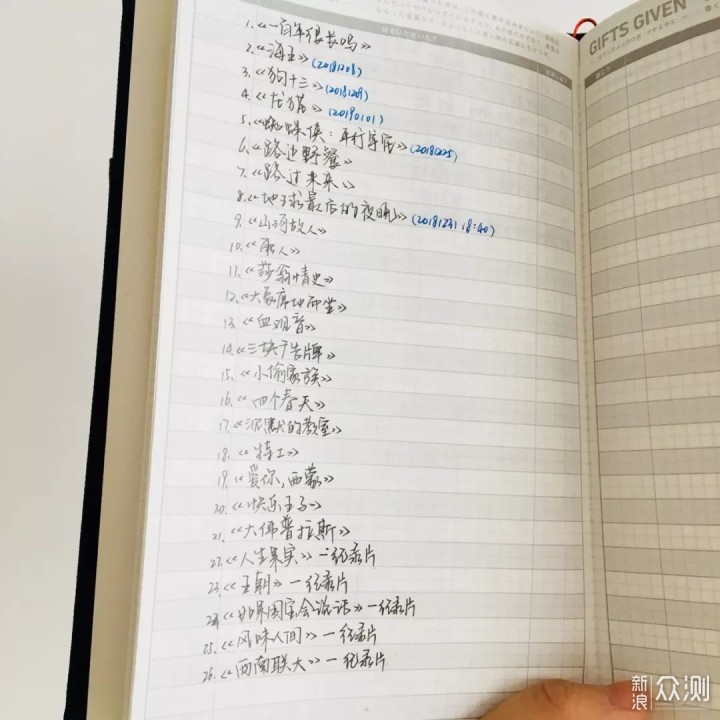 GIFTS GIVEN
1.《一百年很长吗》
2.《海王》(20181208)
3.《狗十三》(20181209)
4.《龙猫》(20190101)
5.《蜘蛛侠：平行宇宙》(20181225)
6.《路边野餐》
7.《路过未来》
8.《地球最后的夜晚》(20181231 18:40)
9.《山河故人》
10.《雨人》
11.《莎翁情史》
12.《大象席地而坐》
13.《血观音》
14.《三块广告牌》
15.《小偷家族》
16.《四个春天》
17.《沉默的教室》
18.《特工》
19.《爱你，西蒙》
20.《快乐王子》
21.《大佛普拉斯》
22.《人生果实》—纪录片
23.《王朝》—纪录片
24.《如果国宝会说话》—纪录片
25.《风味人间》—纪录片
26.《西南联大》—纪录片
新浪众测